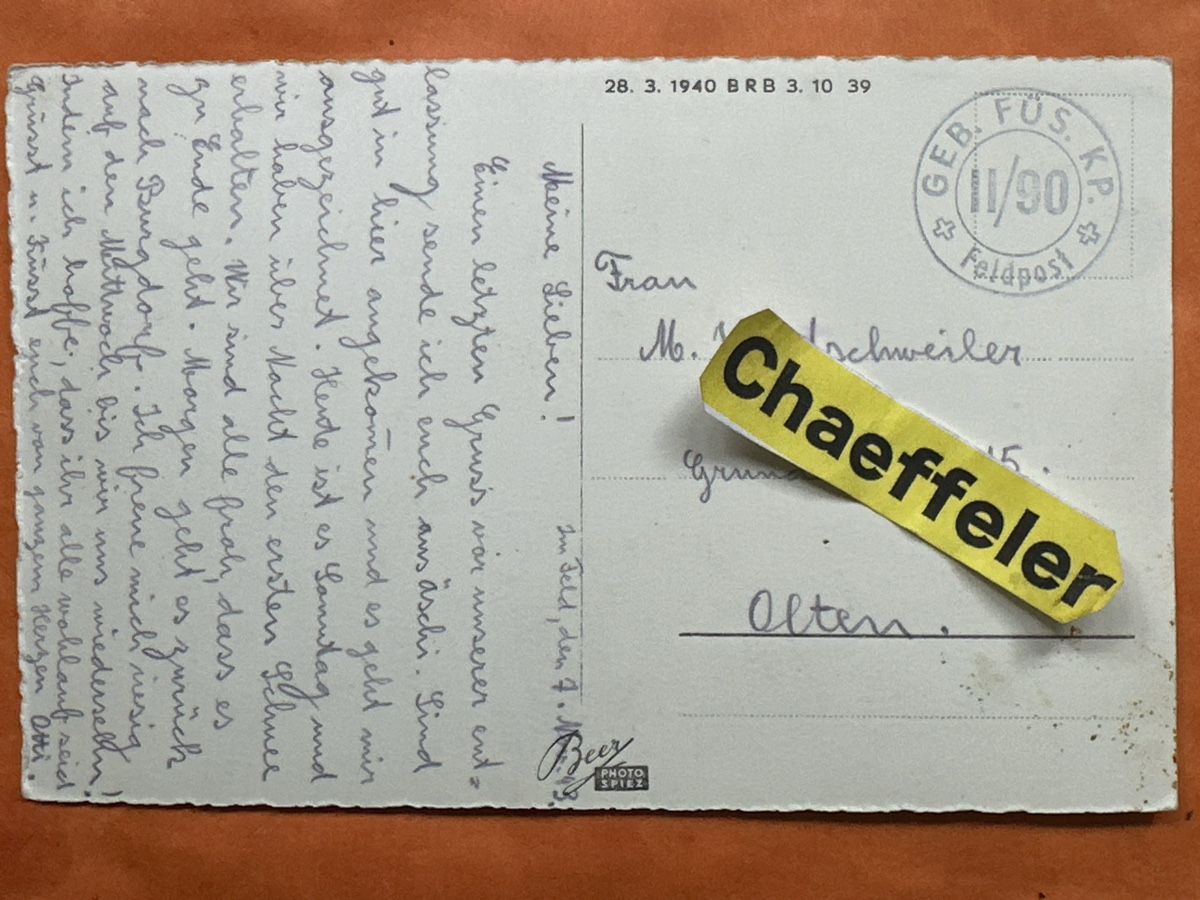 28. 3. 1940 BRB 3. 10 39
GEB. FÜS. KP.
II/90
Feldpost
Frau
M.
15.
Olten.
Chaeffeler
Beer
PHOTO
SPIEZ
Im Feld, den 7.
Meine Lieben!
Einen letzten Gruss vor unserer ent=
lassung sende ich euch aus Äschi. Sind
gut in hier angekom̄en und es geht mir
ausgezeichnet. Heute ist es Sonntag und
wir haben über Nacht den ersten Schnee
erhalten. Wir sind alle froh, dass es
zu Ende geht. Morgen geht es zurück
nach Burgdorf. Ich freue mich riesig
auf den Mittwoch bis wir uns wiedersehn!
Indem ich hoffe, dass ihr alle wohlauf seid
Grüsst u. Küsst euch von ganzem Herzen Otti.